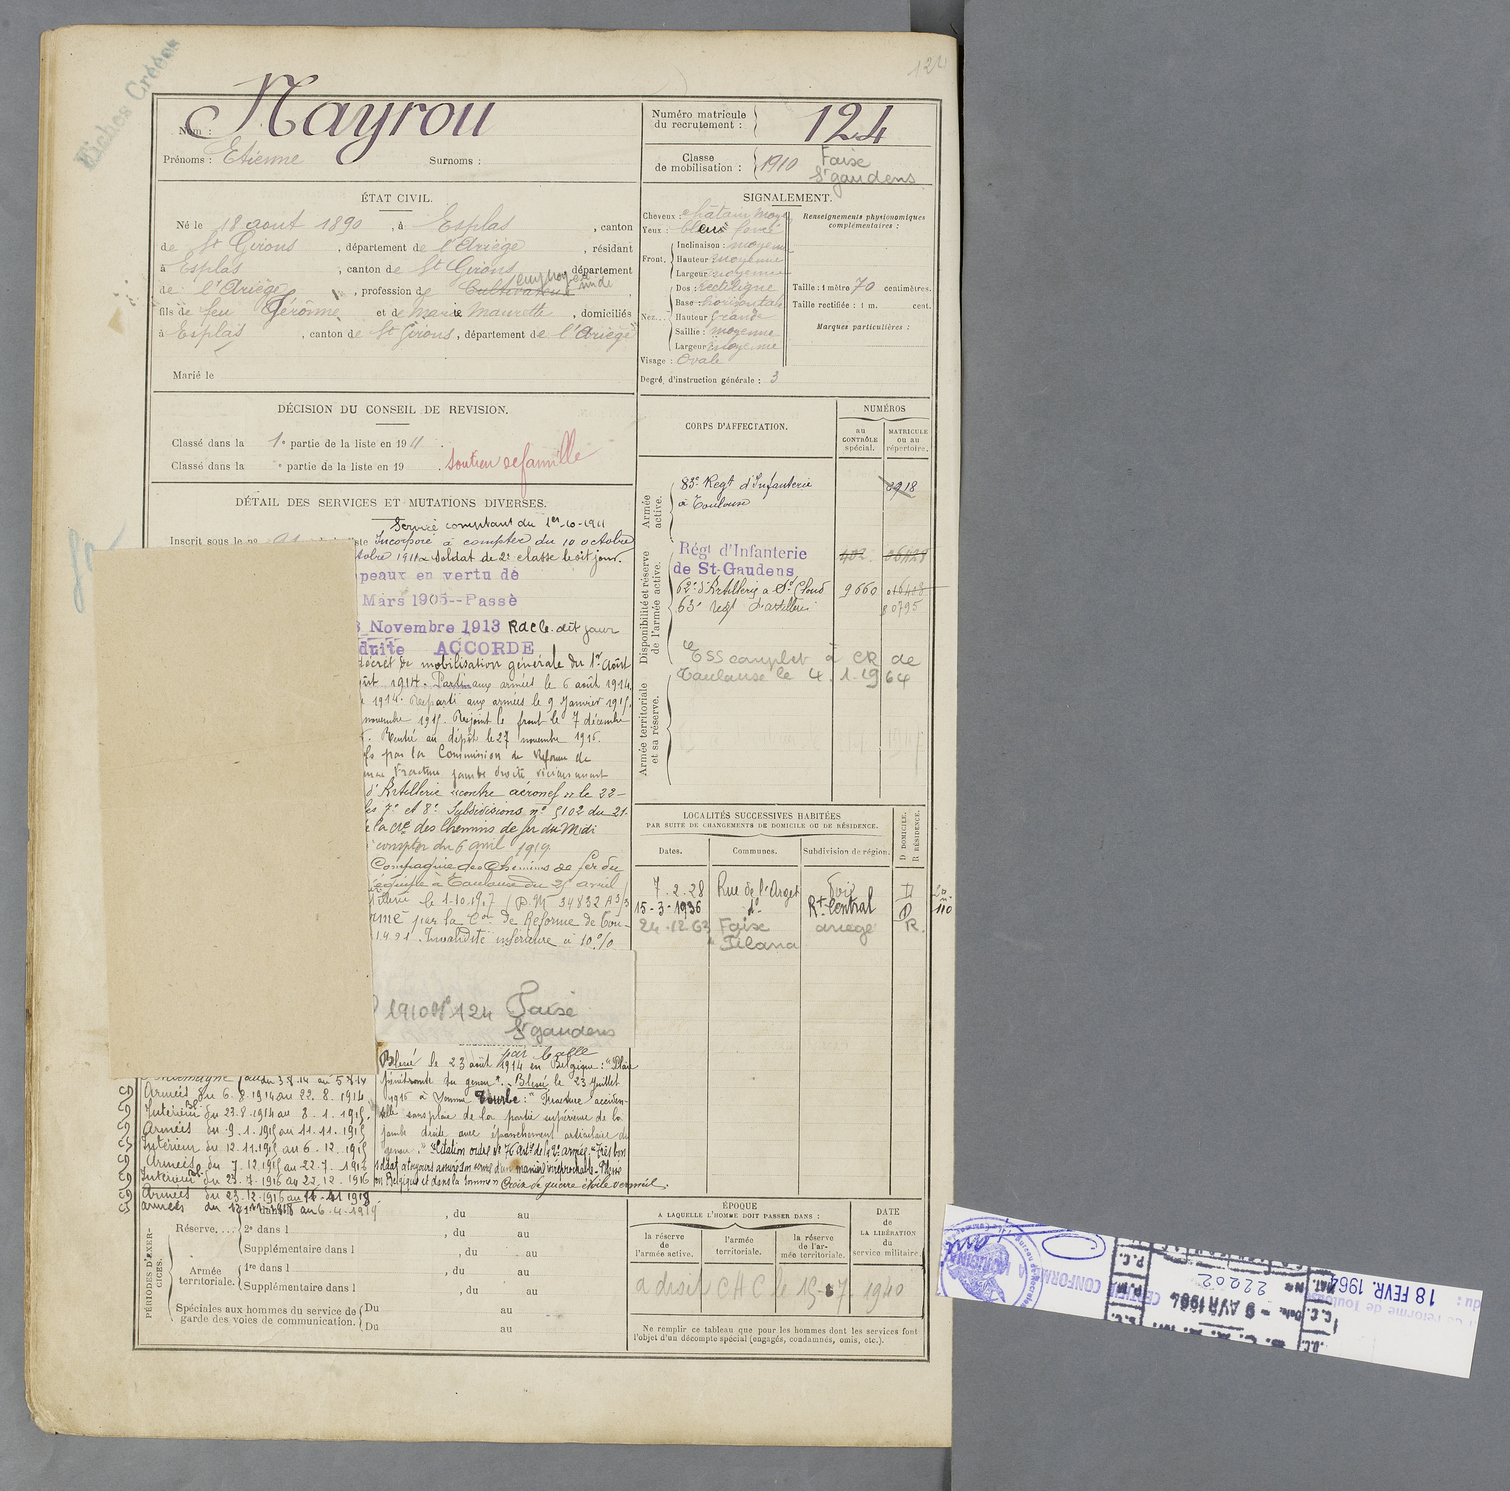 Fiches Créées
124
Nom : Mayrou
Prénoms : Etienne Surnoms :
Numéro matricule du recrutement : 124
Classe de mobilisation : 1910 Faixe St gaudens
ÉTAT CIVIL.
Né le 18 aout 1890, à Esplas, canton
de St Girons, département de l'Ariège, résidant
à Esplas, canton de St Girons, département
de l'Ariège, profession de Cultivateur employé
fils de feu Jérôme et de Marie Maurette, domiciliés
à Esplas, canton de St Girons, département de l'Ariège
Marié le
SIGNALEMENT.
Cheveux : châtain moyen
Yeux : bleu foncé
Front. Inclinaison : moyenne
Hauteur moyenne
Largeur moyenne
Nez... Dos : rectiligne
Base : horizontale
Hauteur grande
Saillie : moyenne
Largeur moyenne
Visage : Ovale
Degré d'instruction générale : 3
Renseignements physionomiques complémentaires :
Taille : 1 mètre 70 centimètres.
Taille rectifiée : 1 m. cent.
Marques particulières :
DÉCISION DU CONSEIL DE REVISION.
Classé dans la 1e partie de la liste en 1911.
Classé dans la e partie de la liste en 19 . Soutien de famille
DÉTAIL DES SERVICES ET MUTATIONS DIVERSES.
Service comptant du 1er-10-1911
Inscrit sous le no de la liste Incorporé à compter du 10 octobre
soldat de 2e classe le dit jour.
peaux en vertu de
Mars 1905--Passé
Novembre 1913 Rdc le dit jour
duite ACCORDE
décret de mobilisation générale du 1er Août
1914. Parti aux armées le 6 août 1914.
1914. Reparti aux armées le 9 Janvier 1915.
novembre 1915. Rejoint le front le 7 décembre
Rentré au dépôt le 27 novembre 1916.
par la Commission de Réforme de
Fracture jambe droite
d'Artillerie contre aéronef le 22-
les 7e et 8e Subdivisions no 5102 du 21-
la Cie des Chemins de fer du Midi
compter du 6 avril 1919.
Compagnie des Chemins de fer du
à Toulouse du 25 avril
le 1-10.1927 (P.M 34832 A3/3
par la Con de Réforme de Tou-
1491. Invalidité inférieure à 10 %
1910 No 124 Faixe
St gaudens
CORPS D'AFFECTATION.
NUMÉROS
au CONTRÔLE spécial.
MATRICULE ou au répertoire.
Armée active.
83e Regt d'Infanterie
à Toulouse
Disponibilité et réserve de l'armée active.
Régt d'Infanterie
de St-Gaudens 402
62e d'Artillerie à St Cloud 9660
63e Regt d'artillerie
ESS complet à CR de
Toulouse le 4.1.1964
Armée territoriale et sa réserve.
LOCALITÉS SUCCESSIVES HABITÉES
PAR SUITE DE CHANGEMENTS DE DOMICILE OU DE RÉSIDENCE.
Dates. Communes. Subdivision de région. D DOMICILE. R RÉSIDENCE.
7.2.28 Rue de l'Arget Foix D
15-3-1936 do Rt Central D
24.12.63 Faixe ariege R.
Filana
Blessé le 23 août 1914 en Belgique : par balle "Plaie
pénétrante du genou". Blessé le 23 Juillet
1916 à Somme Tourbe : "Fracture acciden-
telle sans plaie de la partie supérieure de la
jambe droite avec épanchement articulaire du
genou." Citation ordre No 76 de la armée "Très bon
soldat a toujours assuré son service d'une manière irréprochable. Blessé
en Belgique et dans la Somme" Croix de guerre étoile vermeil.
Allemagne au 5.8.14
Armées du 6.8.1914 au 22.8.1914
Intérieur du 23.8.1914 au 8.1.1915.
Armées du 9.1.1915 au 11.11.1915
Intérieur du 12.11.1915 au 6.12.1915
Armées du 7.12.1915 au 22.7.1916
Intérieur du 23.7.1916 au 22.12.1916
Armées du 23.12.1916 au 11.11.1918
armées du 12.11.1918 au 6.4.1919
PÉRIODES D'EXERCICES.
Réserve.... 1re dans l , du au
2e dans l , du au
Supplémentaire dans l , du au
Armée territoriale. 1re dans l , du au
Supplémentaire dans l , du au
Spéciales aux hommes du service de garde des voies de communication. Du au
Du au
ÉPOQUE
A LAQUELLE L'HOMME DOIT PASSER DANS :
la réserve de l'armée active.
l'armée territoriale.
la réserve de l'armée territoriale.
DATE de LA LIBÉRATION du service militaire.
a droit C H C le 15-8-7 1940
Ne remplir ce tableau que pour les hommes dont les services font
l'objet d'un décompte spécial (engagés, condamnés, omis, etc.).
CERTIFIÉ CONFORME
22202
Date - 9 AVR 1964
18 FEVR. 1964